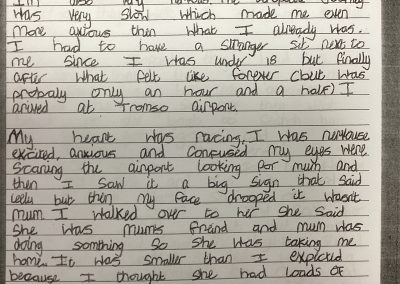 was very slow which made me even
more axious then what I already was.
I had to have a stranger sit next to
me since I was under 18 but finally
after what felt like forever (but was
probaly only an hour and a half) I
arived at Tromso airport.
My heart was racing, I was nurkause
excired, anxious and confused my eyes were
scaning the airport looking for mum and
then I saw it a big sign that said
but then my face drooped it wasnt
mum I walked over to her she said
she was mums friend and mum was
doing somthing so she was taking me
home. It was smaller than I expicted
because I thought she had loads of